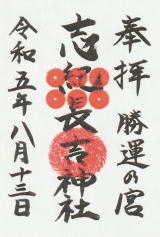 奉拝 勝運の宮
志紀長吉神社
令和五年八月十三日